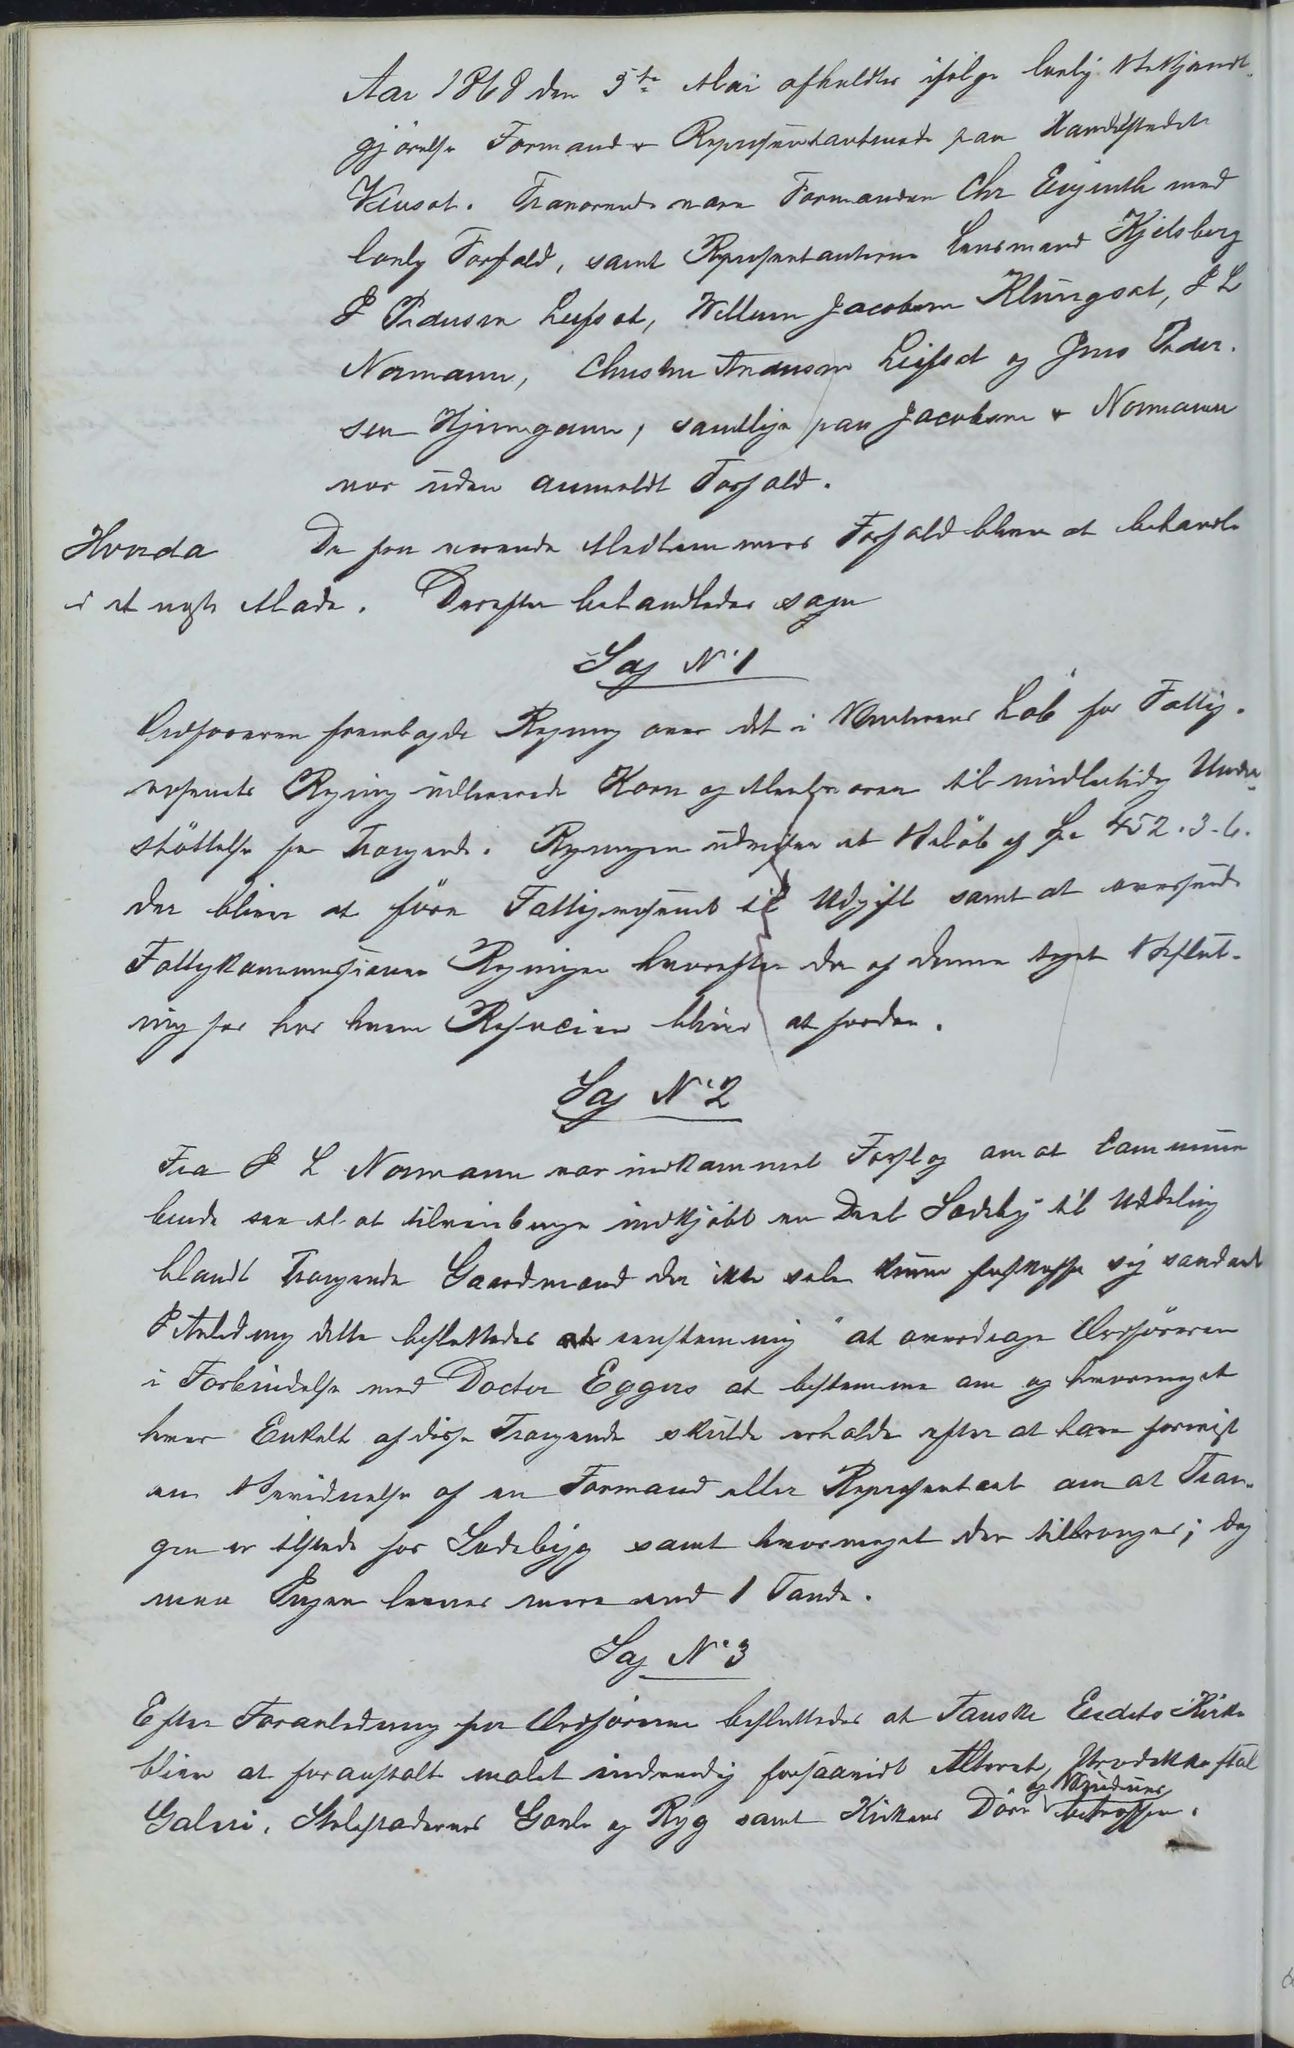 Aar 1868 den 5te Mai afholdtes ifølge lovlig Bekjendt-
gjörelse Formand & Repræsentantmøde paa Handelsstedet
Venset. Fraværende vare Formanden Chr Eyjinth med
lovlig Forfald, samt Repræsentanterne Lensmand Kjelsberg
P Pedersen Leifset, Willum Jacobsen Klungset, P L
Normann, Christen Andersen Leifset og Jens Peder-
sen Hjemgam, samtlige paa Jacobsen & Normann
nær uden anmeldt Forfald.
Hvorda De fra værende Medlemmers Forfald bliver at behandle
i et nyt Møde. Derefter behandledes sagen
Sag No 1
Ordföreren fremlagde Regning over det i Vinterens Löb for Fattig-
væsenets Regning udleverede Korn og Meelvarer til midlertidig Under-
støttelse for Trængende. Regningen udviser et Belöb af Sp 452.3.6.
der bliver at före Fattigvæsenet til Udgift samt at oversende
Fattigkommissionen Regningen hvorefter der af denne tages Beslut-
ning for hos hvem Refusion bliver at fordre.
Sag No 2
Fra P L Normann var indkommet Forslag om at Commune
burde see til at tilveiebringe indkjøbt en Deel Sædebyg til Uddeling
blandt Trængende Gaardmænd der ikke selv kunne forskaffe sig saadant
I Anledning dette besluttedes eenstemmig at overdrage Ordföreren
i Forbindelse med Doctor Eggers at bestemme om og hvormeget
hver Enkelt af disse Trængende skulde erholde efter at have forevist
en Bevidnelse af en Formand eller Repræsentant om at Tran-
gen er tilstede for Sædebyg samt hvormeget der tiltrænges; dog
maa Ingen leveres mere end 1 Tønde.
Sag No 3
Efter Foranledning fra Ordföreren besluttedes at Fauske Eedets Kirke
bliver at foranstalte malet indvendig forsaavidt Alteret, Prædikestol
Galleri, Stolestadernes Gavle og Ryg samt Kirkens Döre og Vinduer betræffer.